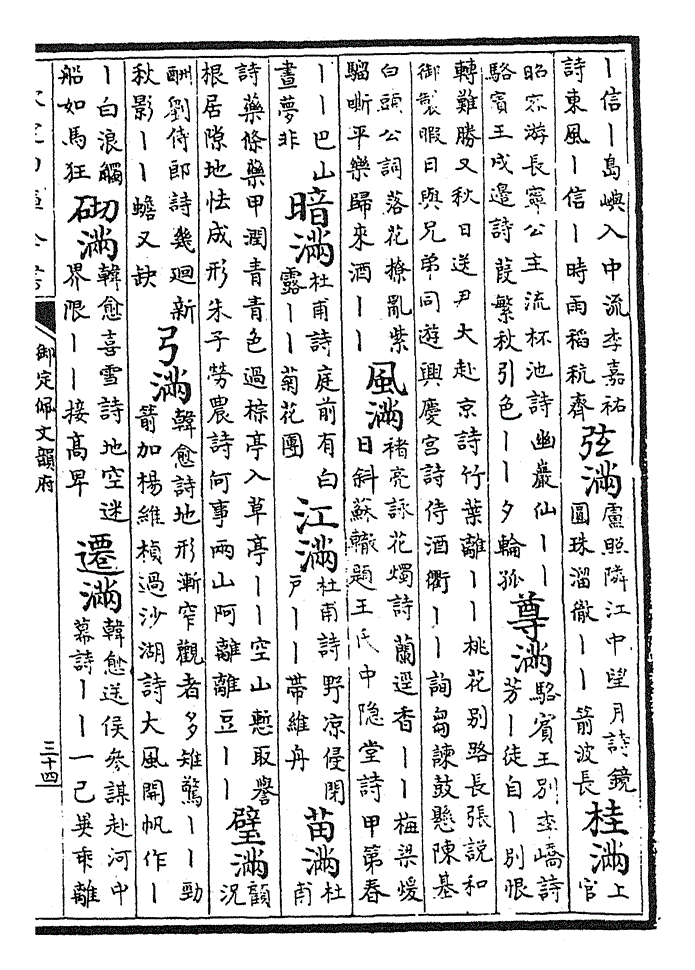 ｜信｜島嶼入中流李嘉祐
詩東風｜信｜時雨稻秔齊
弦滿
盧照隣江中望月詩鏡
圓珠溜徹｜｜箭波長
桂滿
上
官
昭容游長寧公主流杯池詩幽巖仙｜｜
駱賓王戍邊詩葭繁秋引色｜｜夕輪孤
尊滿
駱賓王別李嶠詩
芳｜徒自｜別恨
轉難勝又秋日送尹大赴京詩竹葉離｜｜桃花別路長張説和
御製暇日與兄弟同遊興慶宮詩侍酒衢｜｜詢芻諫鼓懸陳基
白頭公詞落花撩亂紫
騮嘶平樂歸來酒｜｜
風滿
褚亮詠花燭詩蘭逕香｜｜梅梁煖
日斜蘇轍題王氏中隐堂詩甲第春
｜｜巴山
晝夢非
暗滿
杜甫詩庭前有白
露｜｜菊花團
江滿
杜甫詩野凉侵閉
戶｜｜帶維舟
苗滿
杜
甫
詩藥條藥甲潤青青色過棕亭入草亭｜｜空山慙取譽
根居隙地怯成形朱子勞農詩何事兩山阿離離豆｜｜
璧滿
顧
況
酬劉侍郎詩幾廻新
秋影｜｜蟾又缺
弓滿
韓愈詩地形漸窄觀者多雉驚｜｜勁
箭加楊維楨過沙湖詩大風開帆作｜
｜白浪觸
船如馬狂
砌滿
韓愈喜雪詩地空迷
界限｜｜接高卑
遷滿
韓愈送侯參謀赴河中
幕詩｜｜一己異乖離
御定佩文韻府
三十四